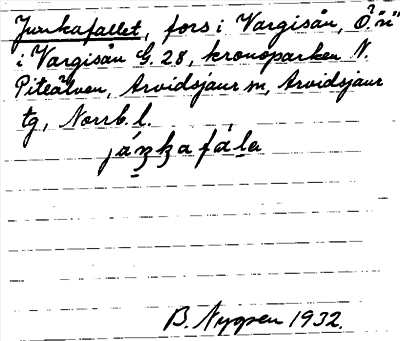 Junkafallet, fors i Vargisån, Ö "n"
i Vargisån G. 28, kronoparken N.
Piteälven, Arvidsjaur sn, Arvidsjaur
tg, Norrb. l.
B. Nygren 1932.